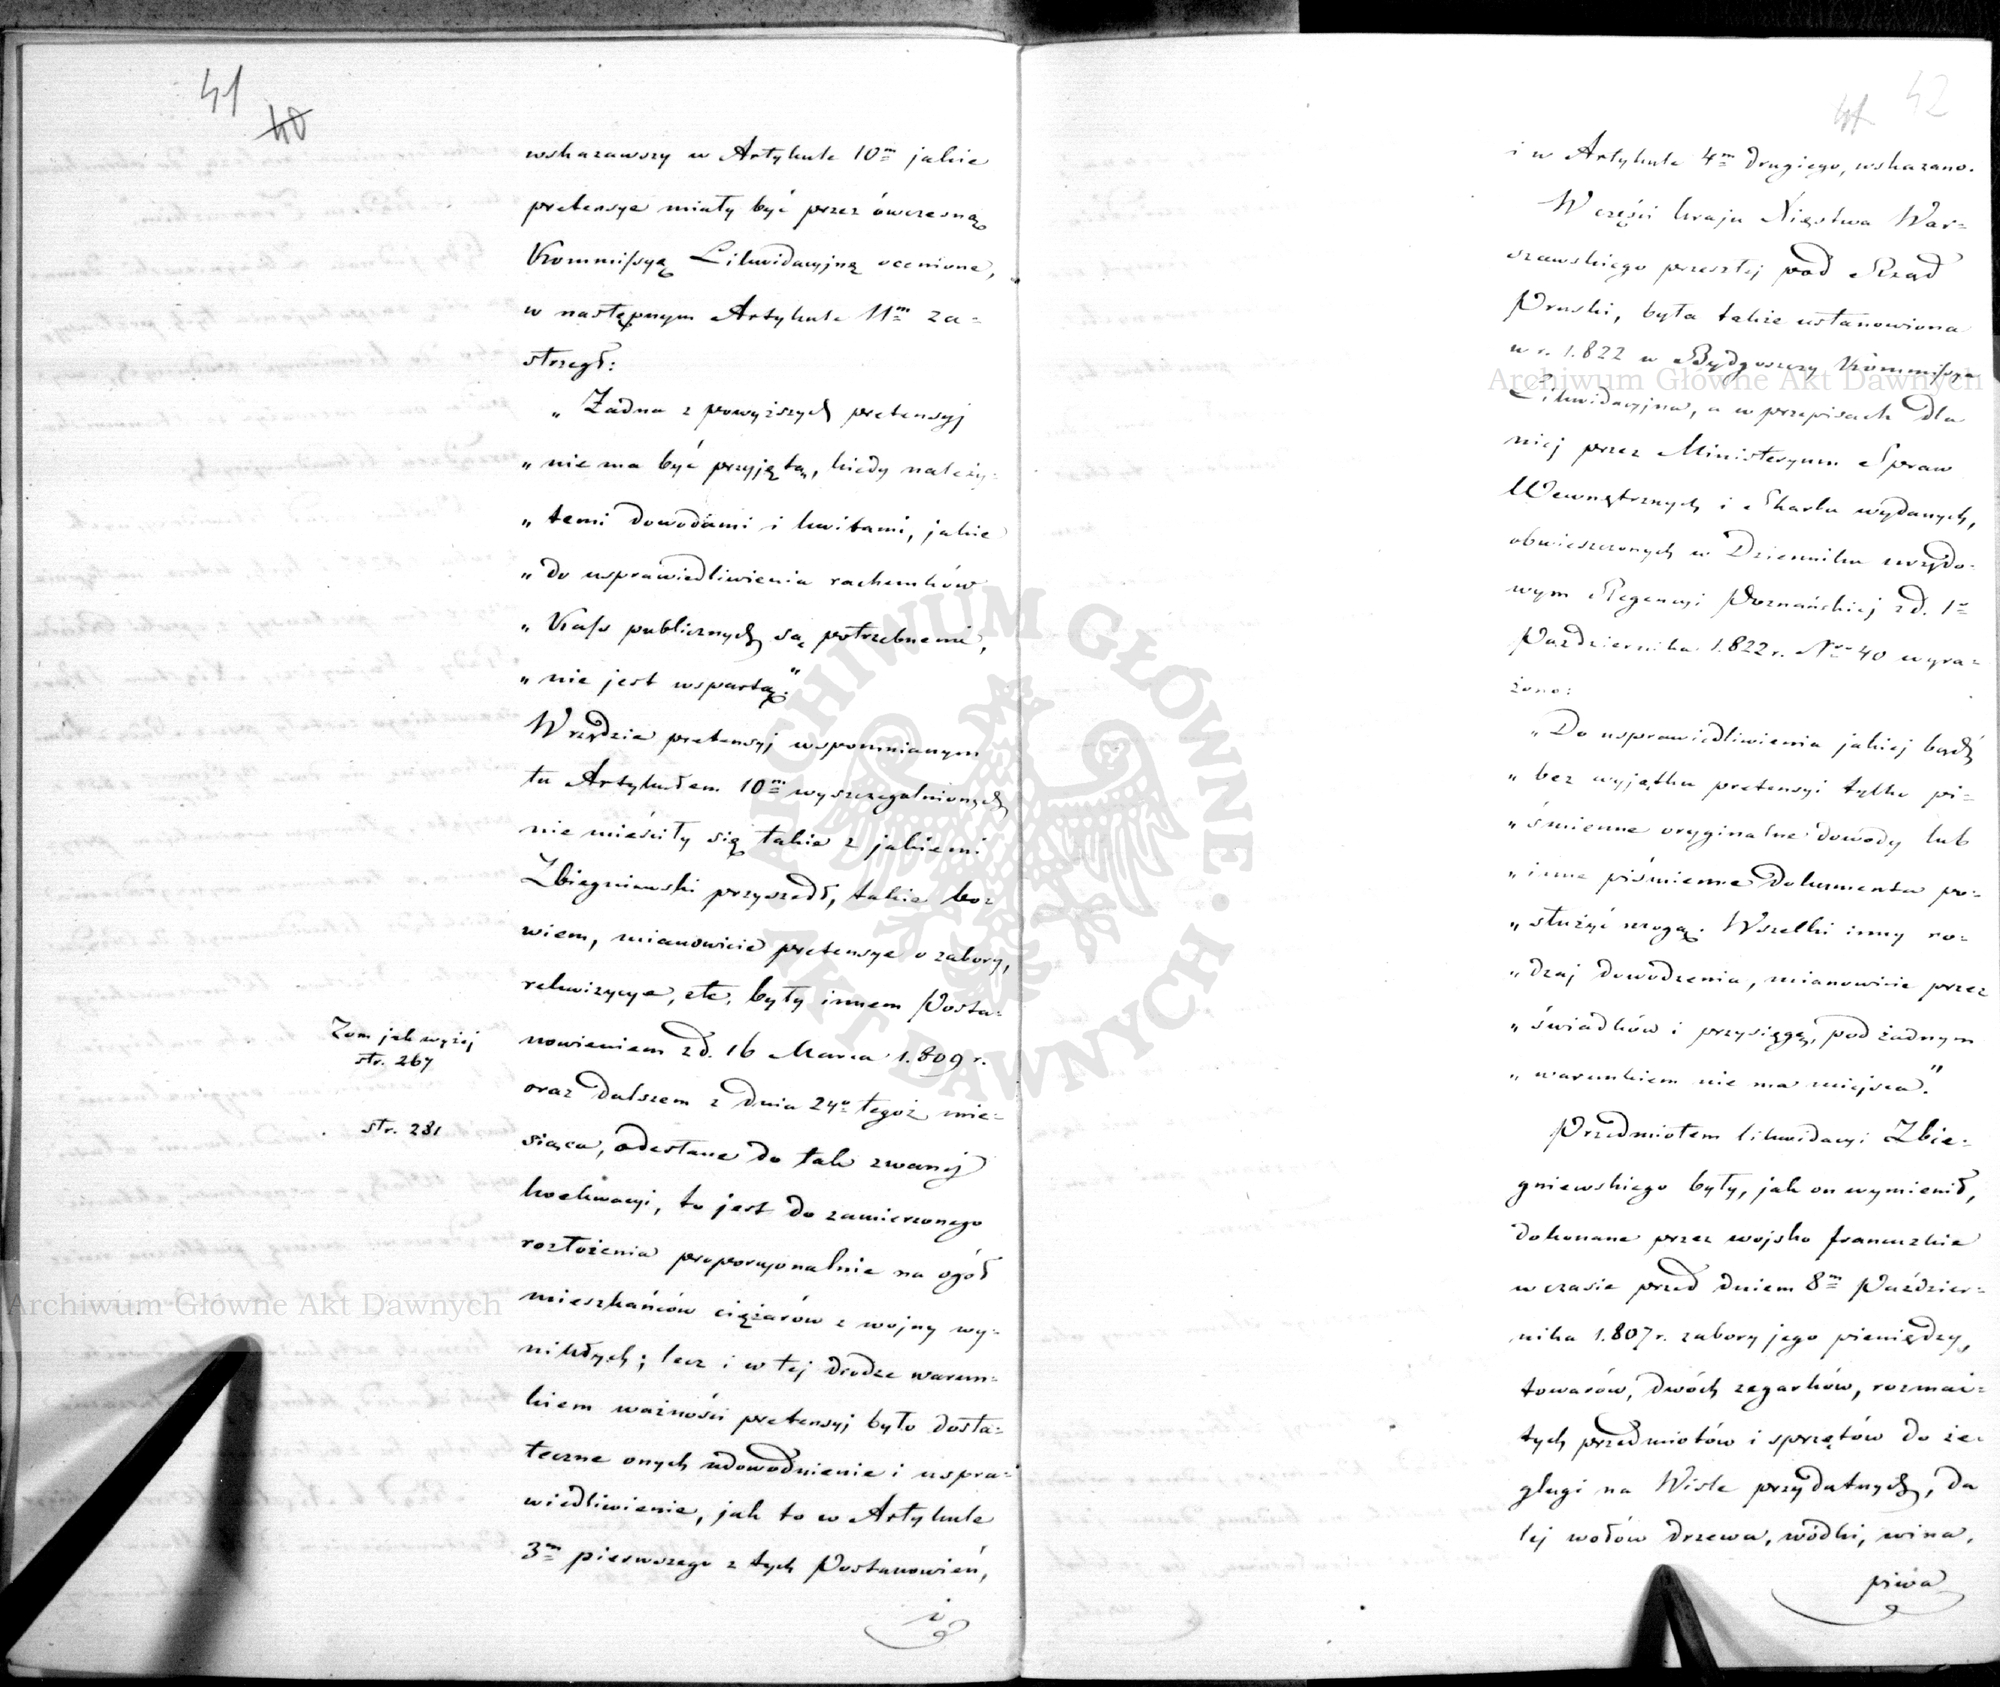 41
40
wskazawszy w Artykule 10m jakie
pretensye miały być przez ówczesną
Kommissyą Likwidacyjną ocenione,
w następnym Artykule 11m za-
strzegł:
„Żadna z powyższych pretensyj
„nie ma być przyjętą, kiedy należy-
„temi dowodami i kwitami, jakie
„do usprawiedliwienia rachunków
„Kass publicznych są potrzebnemi,
„nie jest wspartą."
W rzędzie pretensyj wspomnianym
tu Artykułem 10m wyszczególnionych
nie mieściły się takie z jakiemi
Zbiegniewski przyszedł, takie bo-
wiem, mianowicie pretensye o zabory,
rekwizycye, etc. były innem Posta-
nowieniem z d. 16 Marca 1.809 r.
oraz dalszem z dnia 24o tegoż mie-
siąca, odesłane do tak zwanej
koekwacyi, to jest do zamierzonego
rozłożenia proporcyonalnie na ogół
mieszkańców ciężarów z wojny wy-
nikłych; lecz i w tej drodze warun-
kiem ważności pretensyj było dosta-
teczne onych udowodnienie i uspra-
wiedliwienie, jak to w Artykule
3m pierwszego z tych Postanowień,
i
Tom jak wyżej
str. 267
str. 281
42
41
i w Artykule 4m drugiego, wskazano.
W części kraju Xięstwa War-
szawskiego przeszłej pod Rząd
Pruski, była także ustanowiona
w r. 1.822 w Bydgoszczy Kommissya
Likwidacyjna, a w przepisach dla
niej przez Ministeryum Spraw
Wewnętrznych i Skarbu wydanych,
obwieszczonych w Dzienniku urzędo-
wym Regencyi Poznańskiej z d. 1o
Października 1.822 r. Nro 40 wyra-
żono:
„Do usprawiedliwienia jakiej bądź
„bez wyjątku pretensyi tylko pi-
„śmienne oryginalne dowody lub
„inne piśmienne dokumenta po-
„służyć mogą. Wszelki inny ro-
„dzaj dowodzenia, mianowicie przez
„świadków i przysięgę, pod żadnym
„warunkiem nie ma miejsca."
Przedmiotem likwidacyi Zbie-
gniewskiego były, jak on wymienił,
dokonane przez wojsko francuzkie
w czasie przed dniem 8m Paździer-
nika 1.807 r. zabory jego pieniędzy,
towarów, dwóch zegarków, rozmai-
tych przedmiotów i sprzętów do że-
glugi na Wiśle przydatnych, da
lej wołów drzewa, wódki, wina,
piwa
Archiwum Główne Akt Dawnych
Archiwum Główne Akt Dawnych
ARCHIWUM GŁÓWNE · AKT DAWNYCH ·